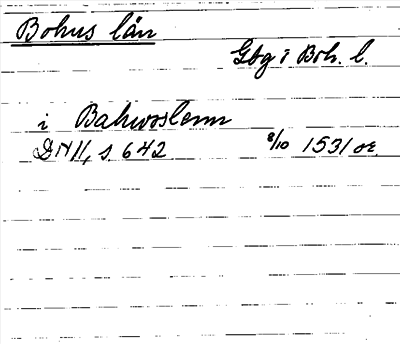 Bohus län
Gbg i Boh. l.
i Bahwsslenn
DN II, s. 642 8/10 1531 or.